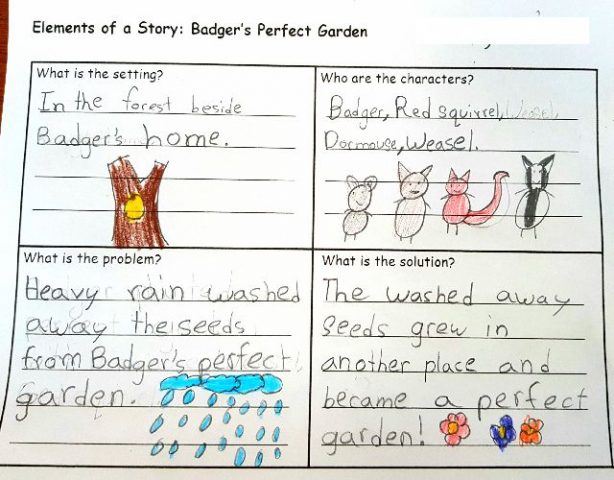 Elements of a Story: Badger's Perfect Garden
What is the setting?
In the forest beside
Badger's home.
Who are the characters?
Badger, Red squirrel, Weasel,
Dormouse, Weasel.
What is the problem?
Heavy rain washed
away the seeds
from Badger's perfect
garden.
What is the solution?
The washed away
seeds grew in
another place and
became a perfect
garden!